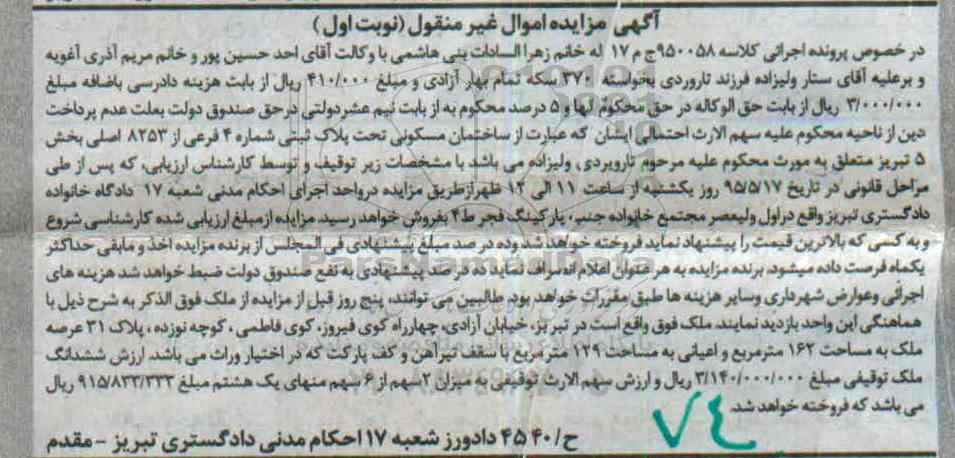 آگهی مزایده اموال غیر منقول (نوبت اول)
در خصوص پرونده اجرائی کلاسه ۹۵۰۰۵۸ج م ۱۷ له خانم زهرا السادات بنی هاشمی با وکالت آقای احد حسین پور و خانم مریم آذری آغویه
و برعلیه آقای ستار ولیزاده فرزند تاروردی بخواسته ۳۷۰ سکه تمام بهار آزادی و مبلغ ۴۱۰/۰۰۰ ریال از بابت هزینه دادرسی باضافه مبلغ
۳/۰۰۰/۰۰۰ ریال از بابت حق الوکاله در حق محکوم لها و ۵ درصد محکوم به از بابت نیم عشردولتی درحق صندوق دولت بعلت عدم پرداخت
دین از ناحیه محکوم علیه سهم الارث احتمالی ایشان که عبارت از ساختمان مسکونی تحت پلاک ثبتی شماره ۴ فرعی از ۸۲۵۳ اصلی بخش
۵ تبریز متعلق به مورث محکوم علیه مرحوم تارویردی، ولیزاده می باشد با مشخصات زیر توقیف و توسط کارشناس ارزیابی، که پس از طی
مراحل قانونی در تاریخ ۹۵/۵/۱۷ روز یکشنبه از ساعت ۱۱ الی ۱۲ ظهرازطریق مزایده درواحد اجرای احکام مدنی شعبه ۱۷ دادگاه خانواده
دادگستری تبریز واقع دراول ولیعصر مجتمع خانواده جنب، پارکینگ فجر ط۴ بفروش خواهد رسید. مزایده ازمبلغ ارزیابی شده کارشناسی شروع
و به کسی که بالاترین قیمت را پیشنهاد نماید فروخته خواهد شد وده در صد مبلغ پیشنهادی فی المجلس از برنده مزایده اخذ و مابقی حداکثر
یکماه فرصت داده میشود. برنده مزایده به هر عنوان اعلام انصراف نماید ده در صد پیشنهادی به نفع صندوق دولت ضبط خواهد شد هزینه های
اجرائی وعوارض شهرداری وسایر هزینه ها طبق مقررات خواهد بود. طالبین می توانند، پنج روز قبل از مزایده از ملک فوق الذکر به شرح ذیل با
هماهنگی این واحد بازدید نمایند. ملک فوق واقع است در تبریز، خیابان آزادی، چهارراه کوی فیروز، کوی فاطمی ، کوچه نوزده ، پلاک ۳۱ عرصه
ملک به مساحت ۱۶۲ مترمربع و اعیانی به مساحت ۱۲۹ مترمربع با سقف تیرآهن و کف پارکت که در اختیار وراث می باشد. ارزش ششدانگ
ملک توقیفی مبلغ ۳/۱۴۰/۰۰۰/۰۰۰ ریال و ارزش سهم الارث توقیفی به میزان ۲سهم از ۶ سهم منهای یک هشتم مبلغ ۹۱۵/۸۳۳/۳۳۳ ریال
می باشد که فروخته خواهد شد.
ح/۴۵۴۰ دادورز شعبه ۱۷ احکام مدنی دادگستری تبریز - مقدم
۷۴
ParsNamadData